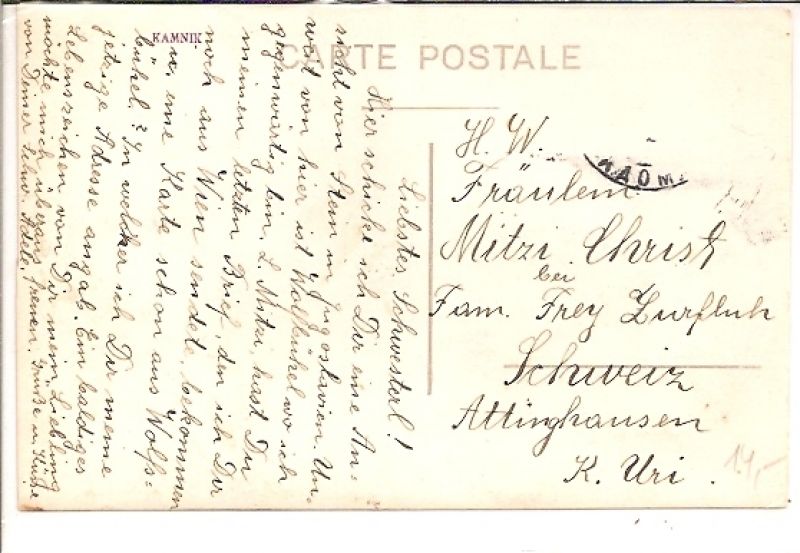 KAMNIK
CARTE POSTALE
Liebstes Schwesterl!
Hier schicke ich Dir eine An-
sicht von Stein in Jugoslavien Un-
weit von hier ist Wolfsbühel wo ich
gegenwärtig bin. L. Mitzi, hast Du
meinen letzten Brief, den ich Dir
noch aus Wien sendete, bekommen
u. eine Karte schon aus Wolfs-
bühel? In welcher ich Dir meine
jetzige Adresse angab. Ein baldiges
Lebenszeichen von Dir mein Liebling
möchte mich überaus freuen. Grüße u. Küße
von Deiner Schw. Adele.
H. W.
Fräulein
Mitzi Christ
bei
Fam. Frey Zurfluh
Schweiz
Attinghausen
K. Uri.
14,-